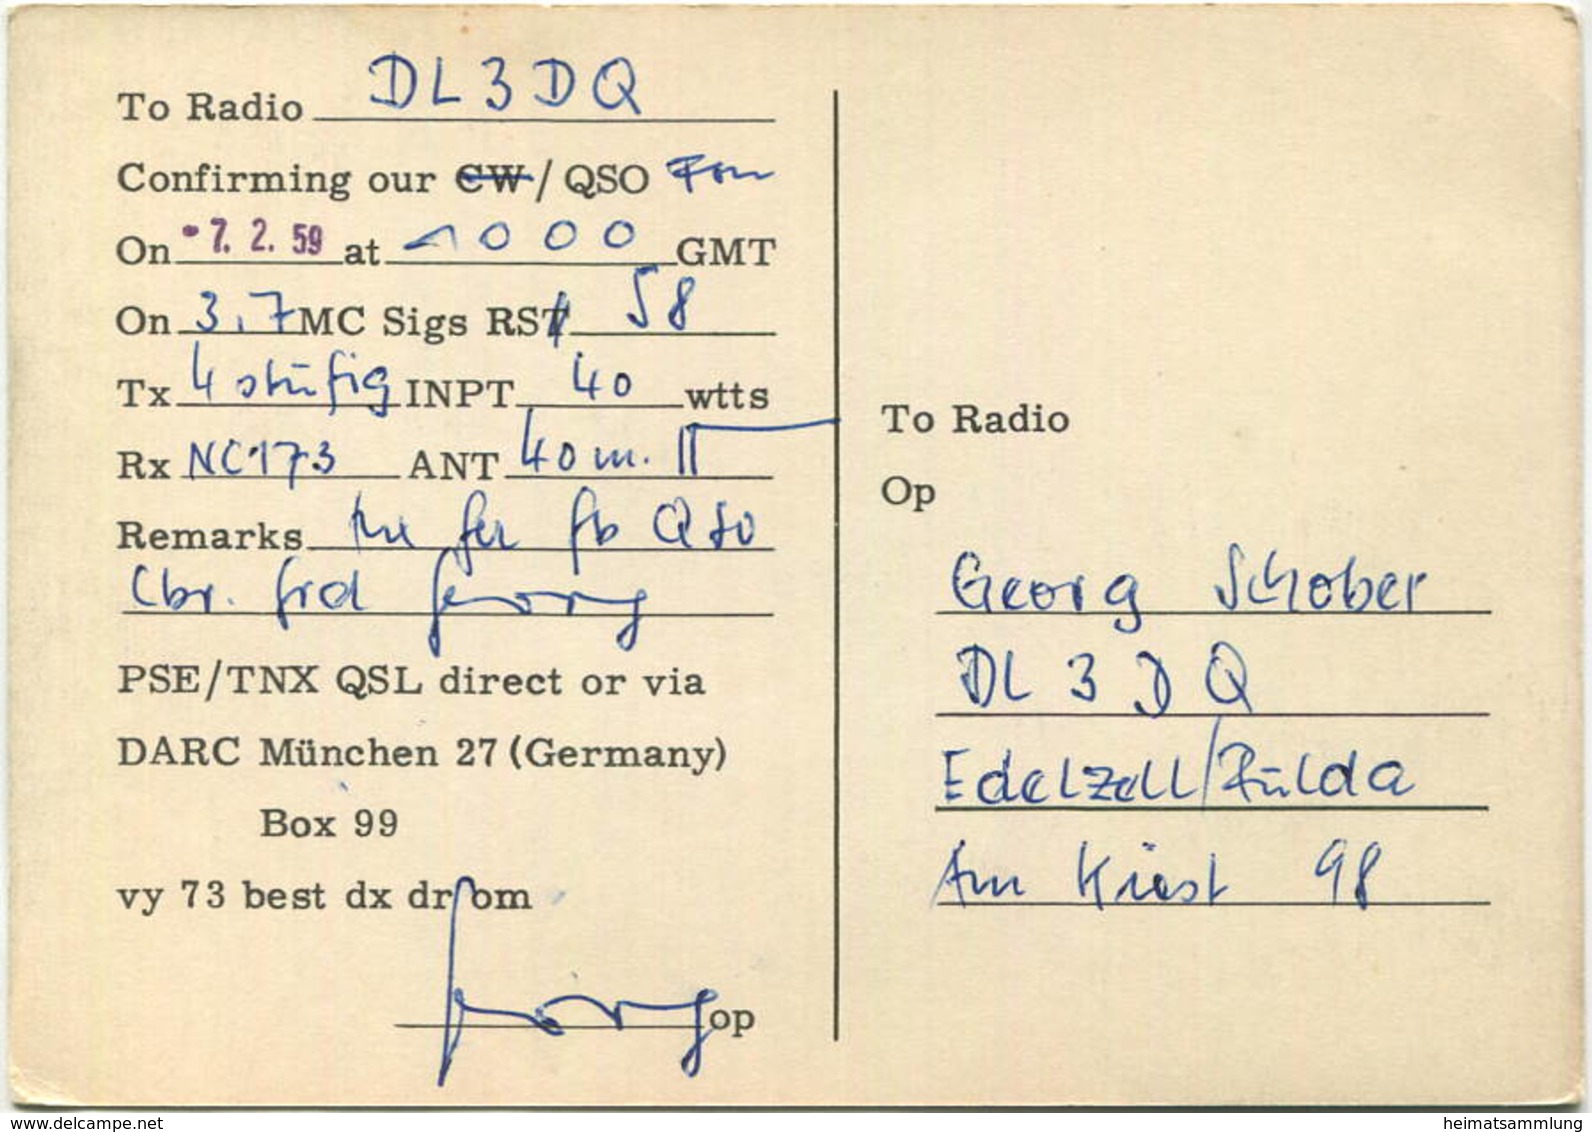 To Radio DL3DQ
Confirming our CW / QSO Fon
On 7. 2. 59 at 1000 GMT
On 3,7 MC Sigs RST 58
Tx 4 stufig INPT 40 wtts
Rx NC173 ANT 40 m.
Remarks fer fb QSO
Cbr. frd Georg
PSE/TNX QSL direct or via
DARC München 27 (Germany)
Box 99
vy 73 best dx dr om
Georg op
To Radio
Op
Georg Schober
DL 3 DQ
Edelzell/Fulda
Am Kiest 98
www.delcampe.net
heimatsammlung